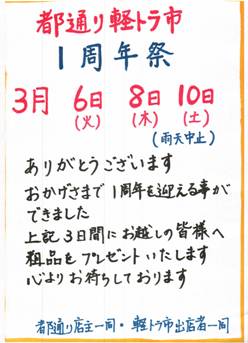 都通り軽トラ市
1周年祭
3月 6日 8日 10日
(火) (木) (土)
(雨天中止)
ありがとうございます
おかげさまで1周年を迎える事が
できました
上記3日間にお越しの皆様へ
粗品をプレゼントいたします
心よりお待ちしております
都通り店主一同・軽トラ市出店者一同